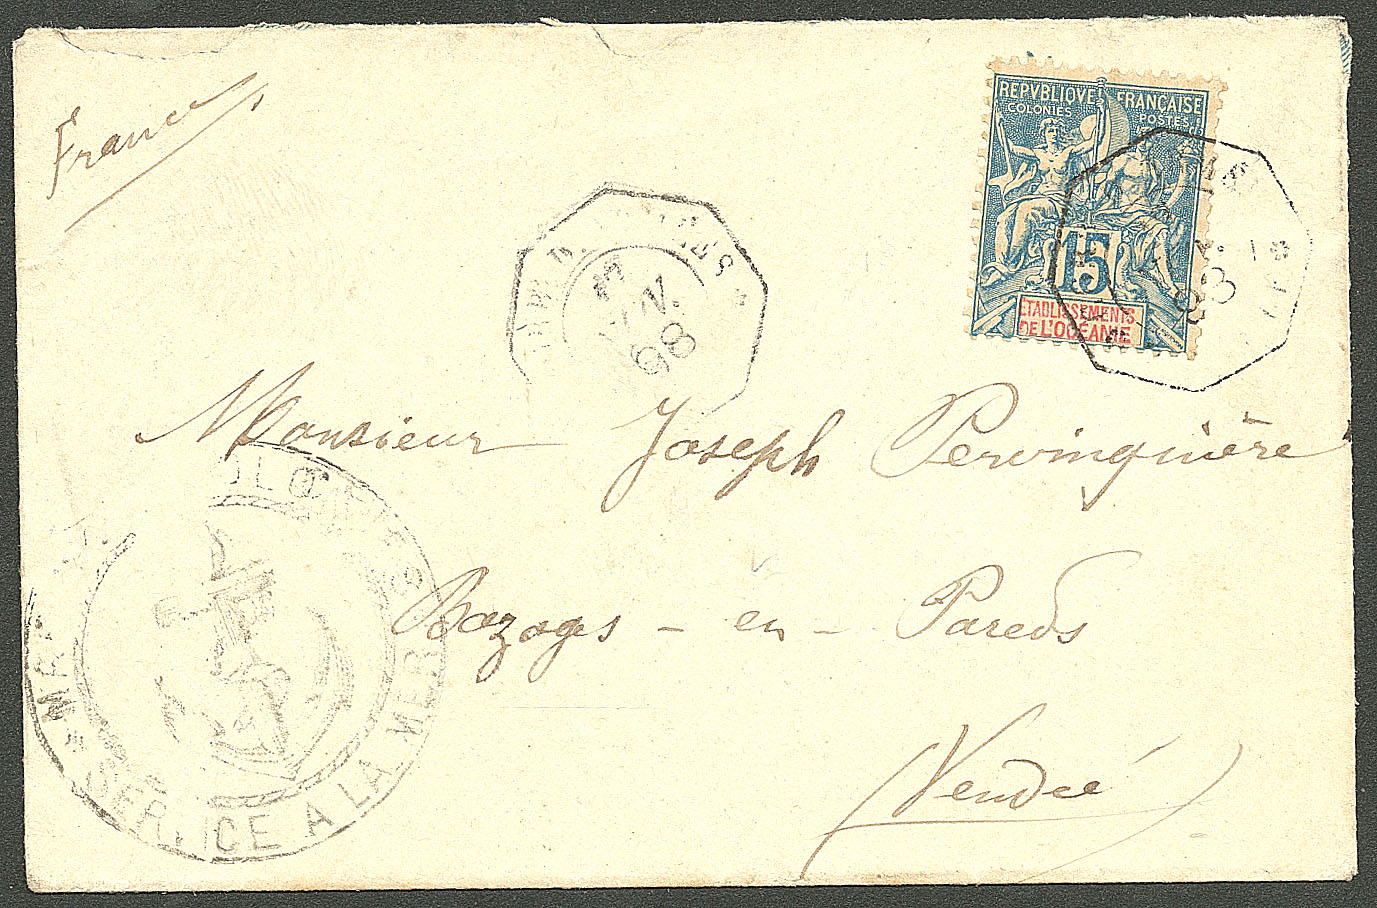 France
REPVBLIQVE FRANÇAISE
COLONIES POSTES
15
ÉTABLISSEMENTS
DE L'OCÉANIE
98
Monsieur Joseph Pervinquière
Bazoges - en - Pareds
Vendée
SERVICE A LA MER